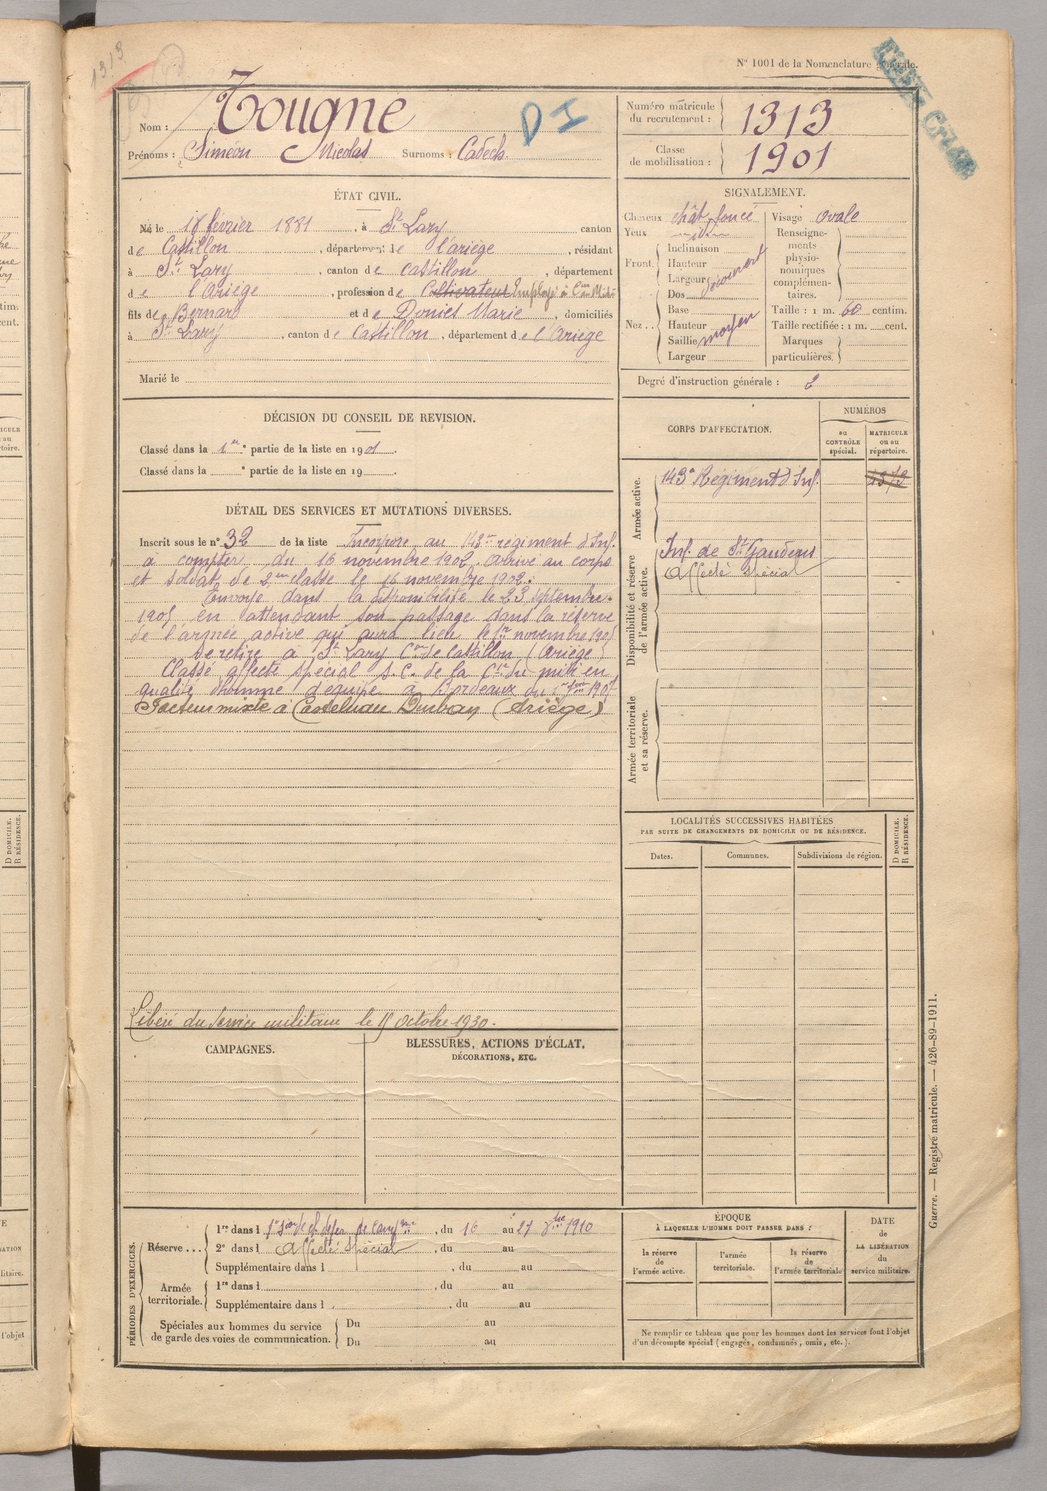 1313
N° 1001 de la Nomenclature générale.
Nom : Tougne
D I
Prénoms : Siméon Nicolas Surnoms : Cadech.
Numéro matricule du recrutement : 1313
Classe de mobilisation : 1901
ÉTAT CIVIL.
Né le 18 février 1881, à St Lary canton
de Castillon, département de l'ariège, résidant
à St Lary, canton de Castillon, département
de l'Ariège, profession de Cultivateur Employé à Cie Midi
fils de Bernard et de Doniès Marie, domiciliés
à St Lary, canton de Castillon, département de l'Ariège
Marié le
SIGNALEMENT.
Cheveux chât foncé
Yeux
Front. Inclinaison
Hauteur
Largeur découvert
Nez. Dos
Base
Hauteur
Saillie moyen
Largeur
Visage ovale
Renseignements physionomiques complémentaires.
Taille : 1 m. 60 centim.
Taille rectifiée : 1 m. cent.
Marques particulières.
Degré d'instruction générale : 2
DÉCISION DU CONSEIL DE REVISION.
Classé dans la 1re partie de la liste en 1901.
Classé dans la e partie de la liste en 19
DÉTAIL DES SERVICES ET MUTATIONS DIVERSES.
Inscrit sous le n° 32 de la liste Incorporé au 143me régiment d'Inf.
à compter du 16 novembre 1902 arrivé au corps
et soldat de 2me classe le 16 novembre 1902.
Envoyé dans la disponibilité le 23 septembre
1905 en attendant son passage dans la réserve
de l'armée active qui aura lieu le 1er novembre 1905
Se retire à St Lary Con de Castillon (Ariège)
Classé affecté spécial s.c. de la Cie du midi en
qualité d'homme d'équipe à Bordeaux du
Facteur mixte à Castelnau Durban (Ariège)
Libéré du service militaire le 15 octobre 1930.
CORPS D'AFFECTATION.
NUMÉROS
au CONTRÔLE spécial.
MATRICULE ou au répertoire.
Armée active.
143e Régiment d'Inf.
Disponibilité et réserve de l'armée active.
Inf. de St Gaudens
Affecté spécial
Armée territoriale et sa réserve.
LOCALITÉS SUCCESSIVES HABITÉES
PAR SUITE DE CHANGEMENTS DE DOMICILE OU DE RÉSIDENCE.
Dates. Communes. Subdivisions de région.
D DOMICILE. R RÉSIDENCE.
CAMPAGNES.
BLESSURES, ACTIONS D'ÉCLAT,
DÉCORATIONS, ETC.
PÉRIODES D'EXERCICES.
Réserve... 1re dans l , du 10 au 27 8bre 1910
2e dans l Affecté Spécial, du au
Supplémentaire dans l , du au
Armée territoriale. 1re dans l , du au
Supplémentaire dans l , du au
Spéciales aux hommes du service de garde des voies de communication. Du au
Du au
ÉPOQUE
À LAQUELLE L'HOMME DOIT PASSER DANS :
la réserve de l'armée active.
l'armée territoriale.
la réserve de l'armée territoriale.
DATE de LA LIBÉRATION du service militaire.
Ne remplir ce tableau que pour les hommes dont les services font l'objet
d'un décompte spécial (engagés, condamnés, omis, etc.).
Guerre. — Registre matricule. — 426-89-1911.